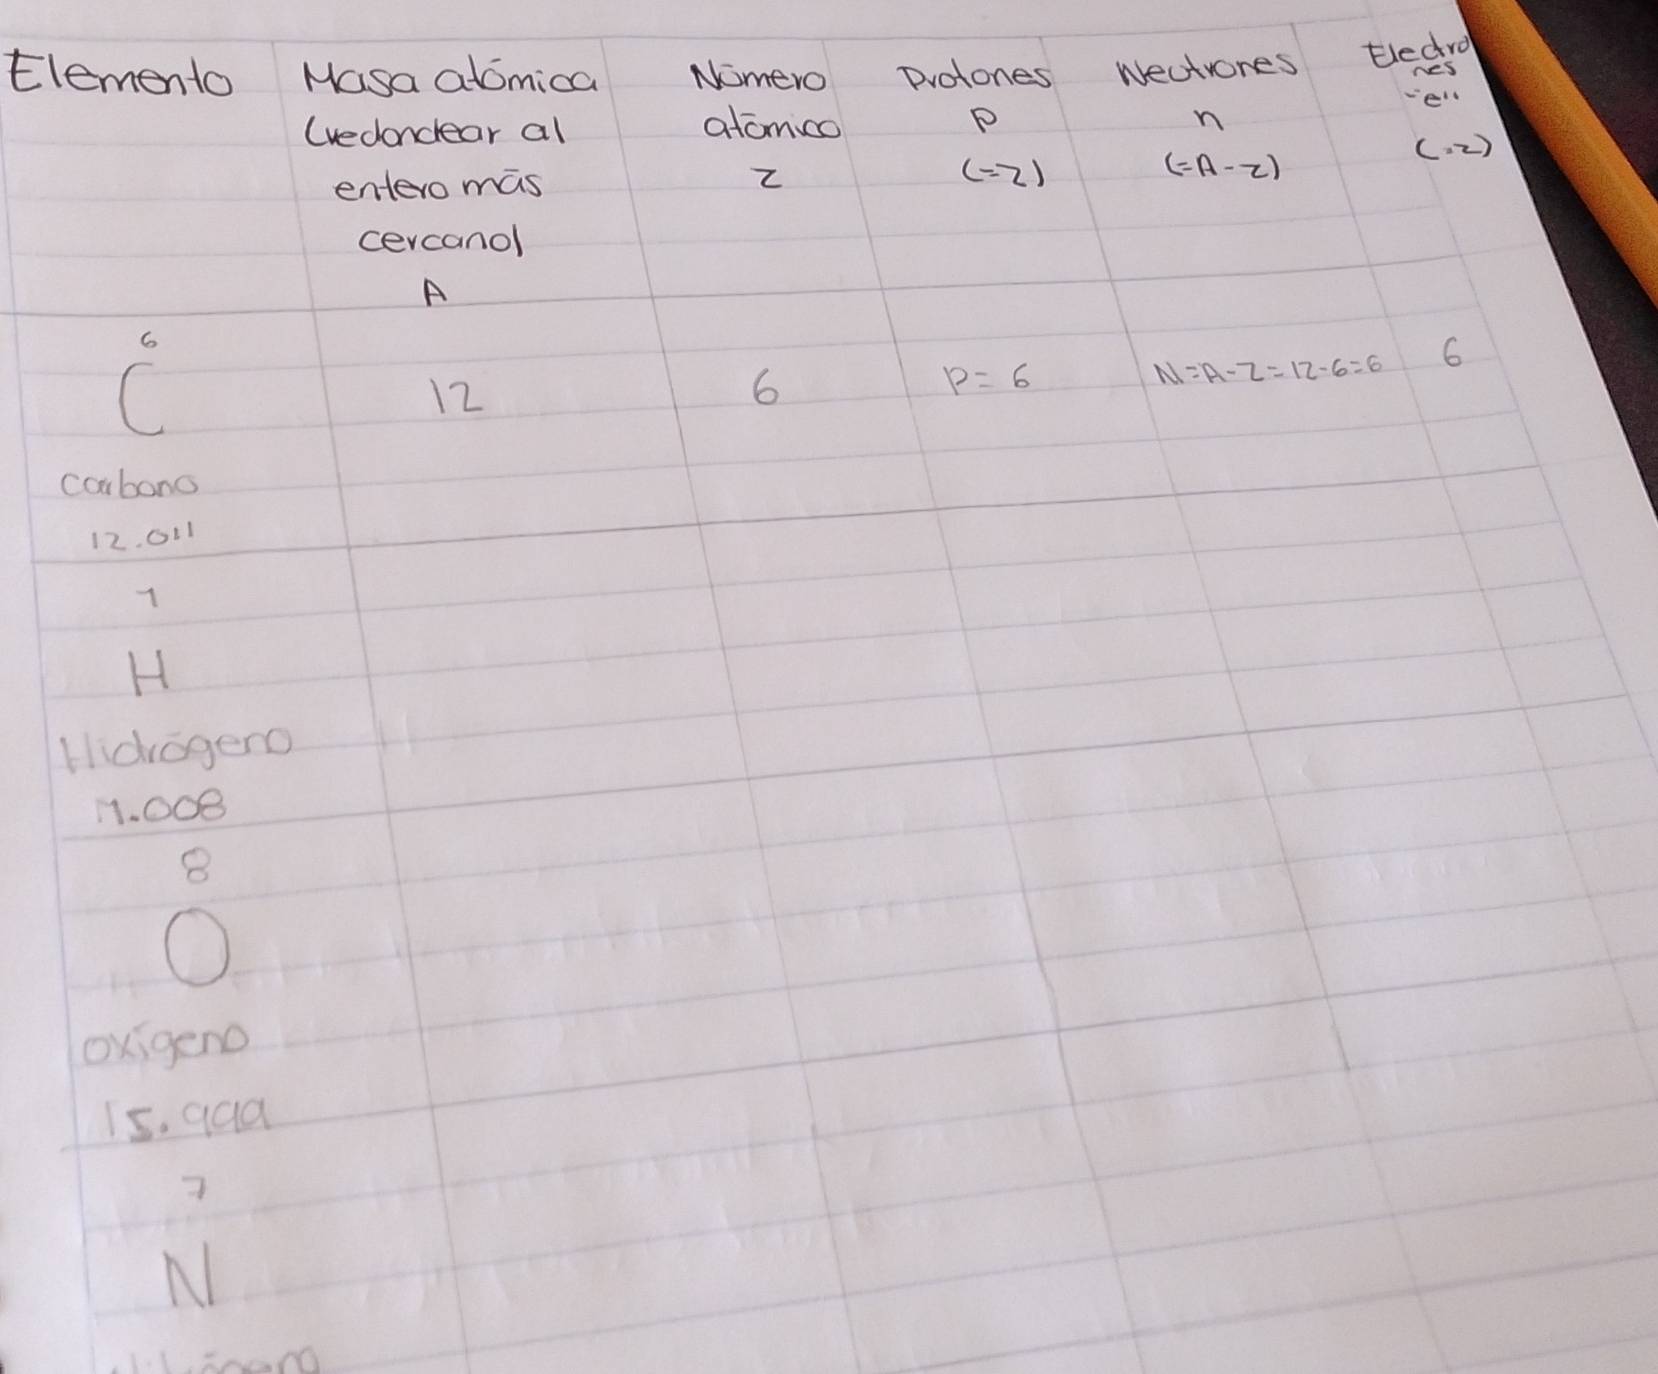 Elemento Masa atómica Número Protones Neutrones Electro
(redondear al atómico P n nes
entero más Z (=Z) (=A-Z) "e"
cercano) (=Z)
A
6
C 12 6 P=6 N=A-Z=12-6=6 6
carbono
12.011
1
H
Hidrógeno
1.008
8
O
oxígeno
15.999
7
N